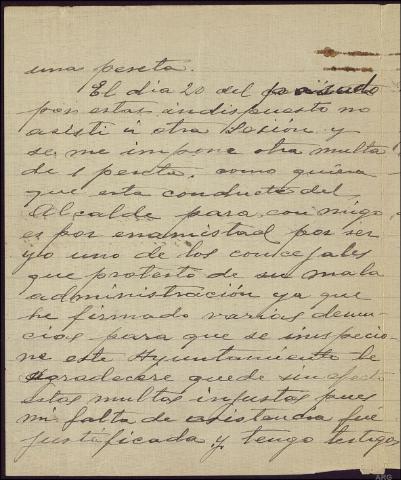 una peseta.
El dia 20 del pasado
por estar indispuesto no
asisti a otra Sesión y
se me impone otra multa
de 1 peseta. como quiera
que esta conducta del
Alcalde para con migo,
es por enamistad por ser
yo uno de los concejales
que protesto de su mala
administración ya que
he firmado varias denun-
cias para que se inspecio-
ne este Ayuntamiento le
agradecere quede sin efecto
estas multas injustas pues
mi falta de asistencia fué
justificada y tengo testigos
ARG